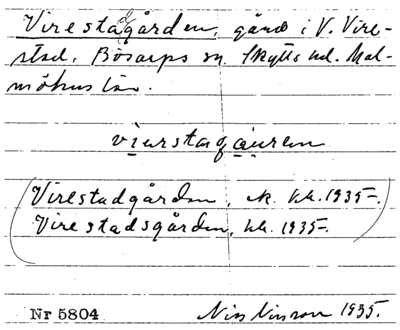 Virestagården, gård i V. Vire-
stad, Bösarps sn. Skytts hd. Mal-
möhus län.
(Virestadgården, ek. kh. 1935.
Virestadsgården, kh. 1935.)
Nr 5804 Nils Nilsson 1935.